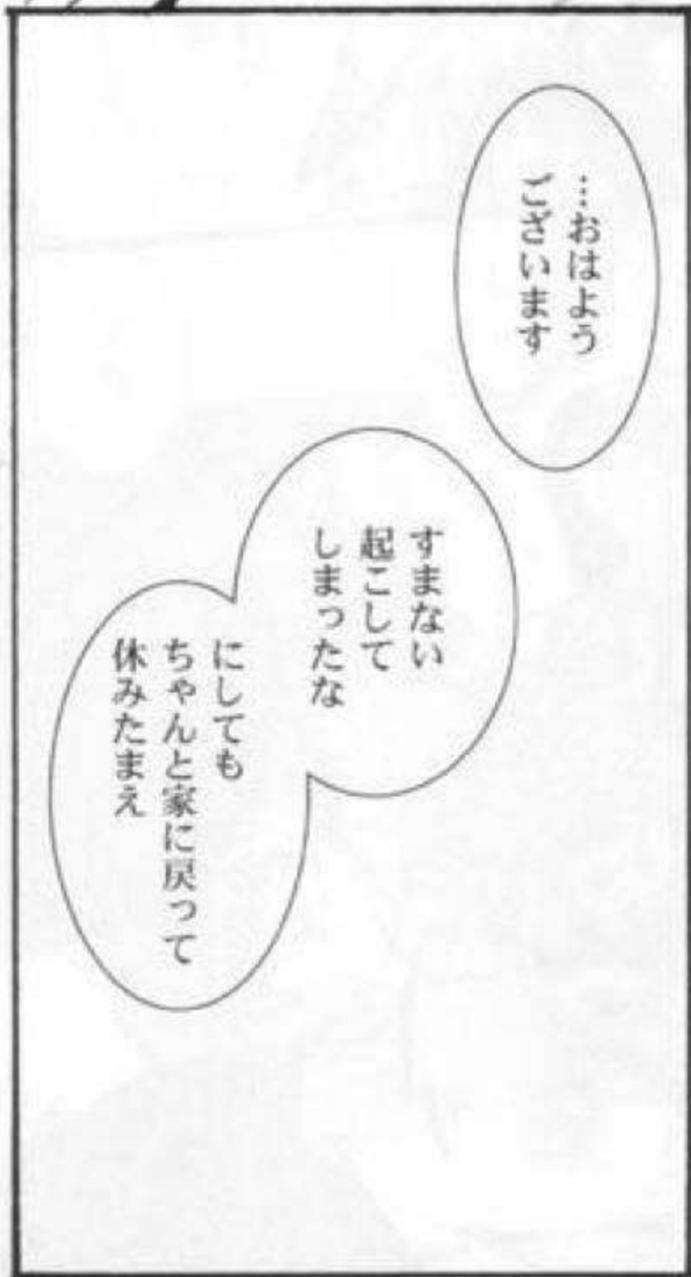 …おはよう
ございます
すまない
起こして
しまったな
にしても
ちゃんと家に戻って
休みたまえ